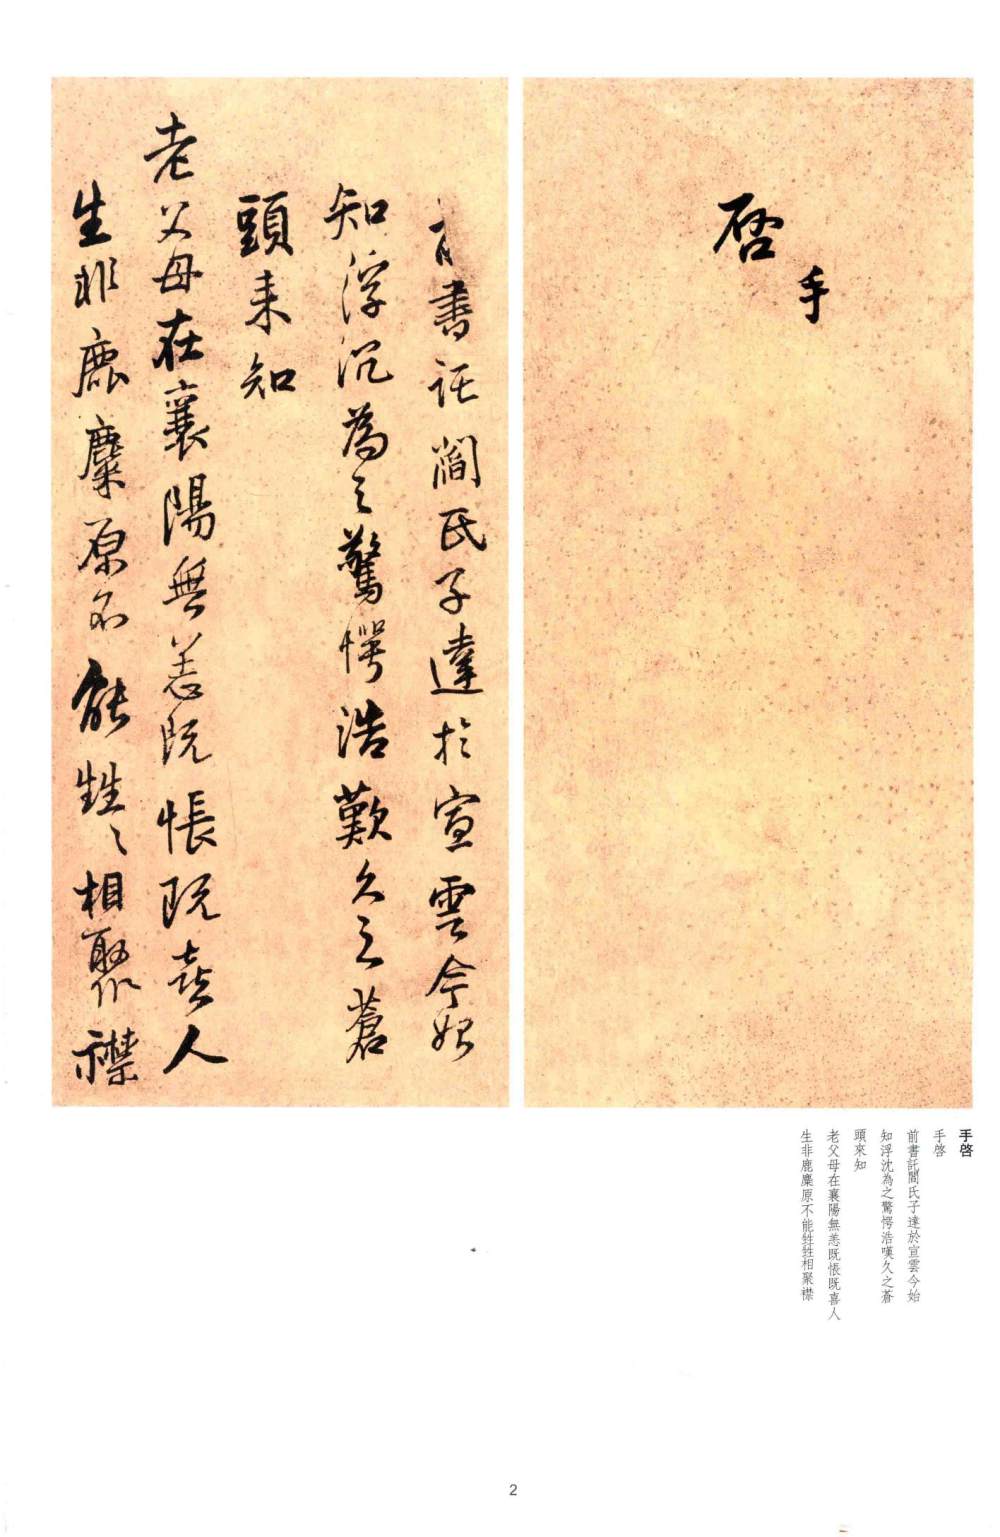 手
啓
前書託閻氏子達於宣雲今始
知浮沉為之驚愕浩歎久之蒼
頭来知
老父母在襄陽無恙既悵既喜人
生非鹿麋原不能甡〻相聚襟
手啓
手啓
前書託閻氏子達於宣雲今始
知浮沈為之驚愕浩嘆久之蒼
頭來知
老父母在襄陽無恙既悵既喜人
生非鹿麋原不能甡甡相聚襟
2